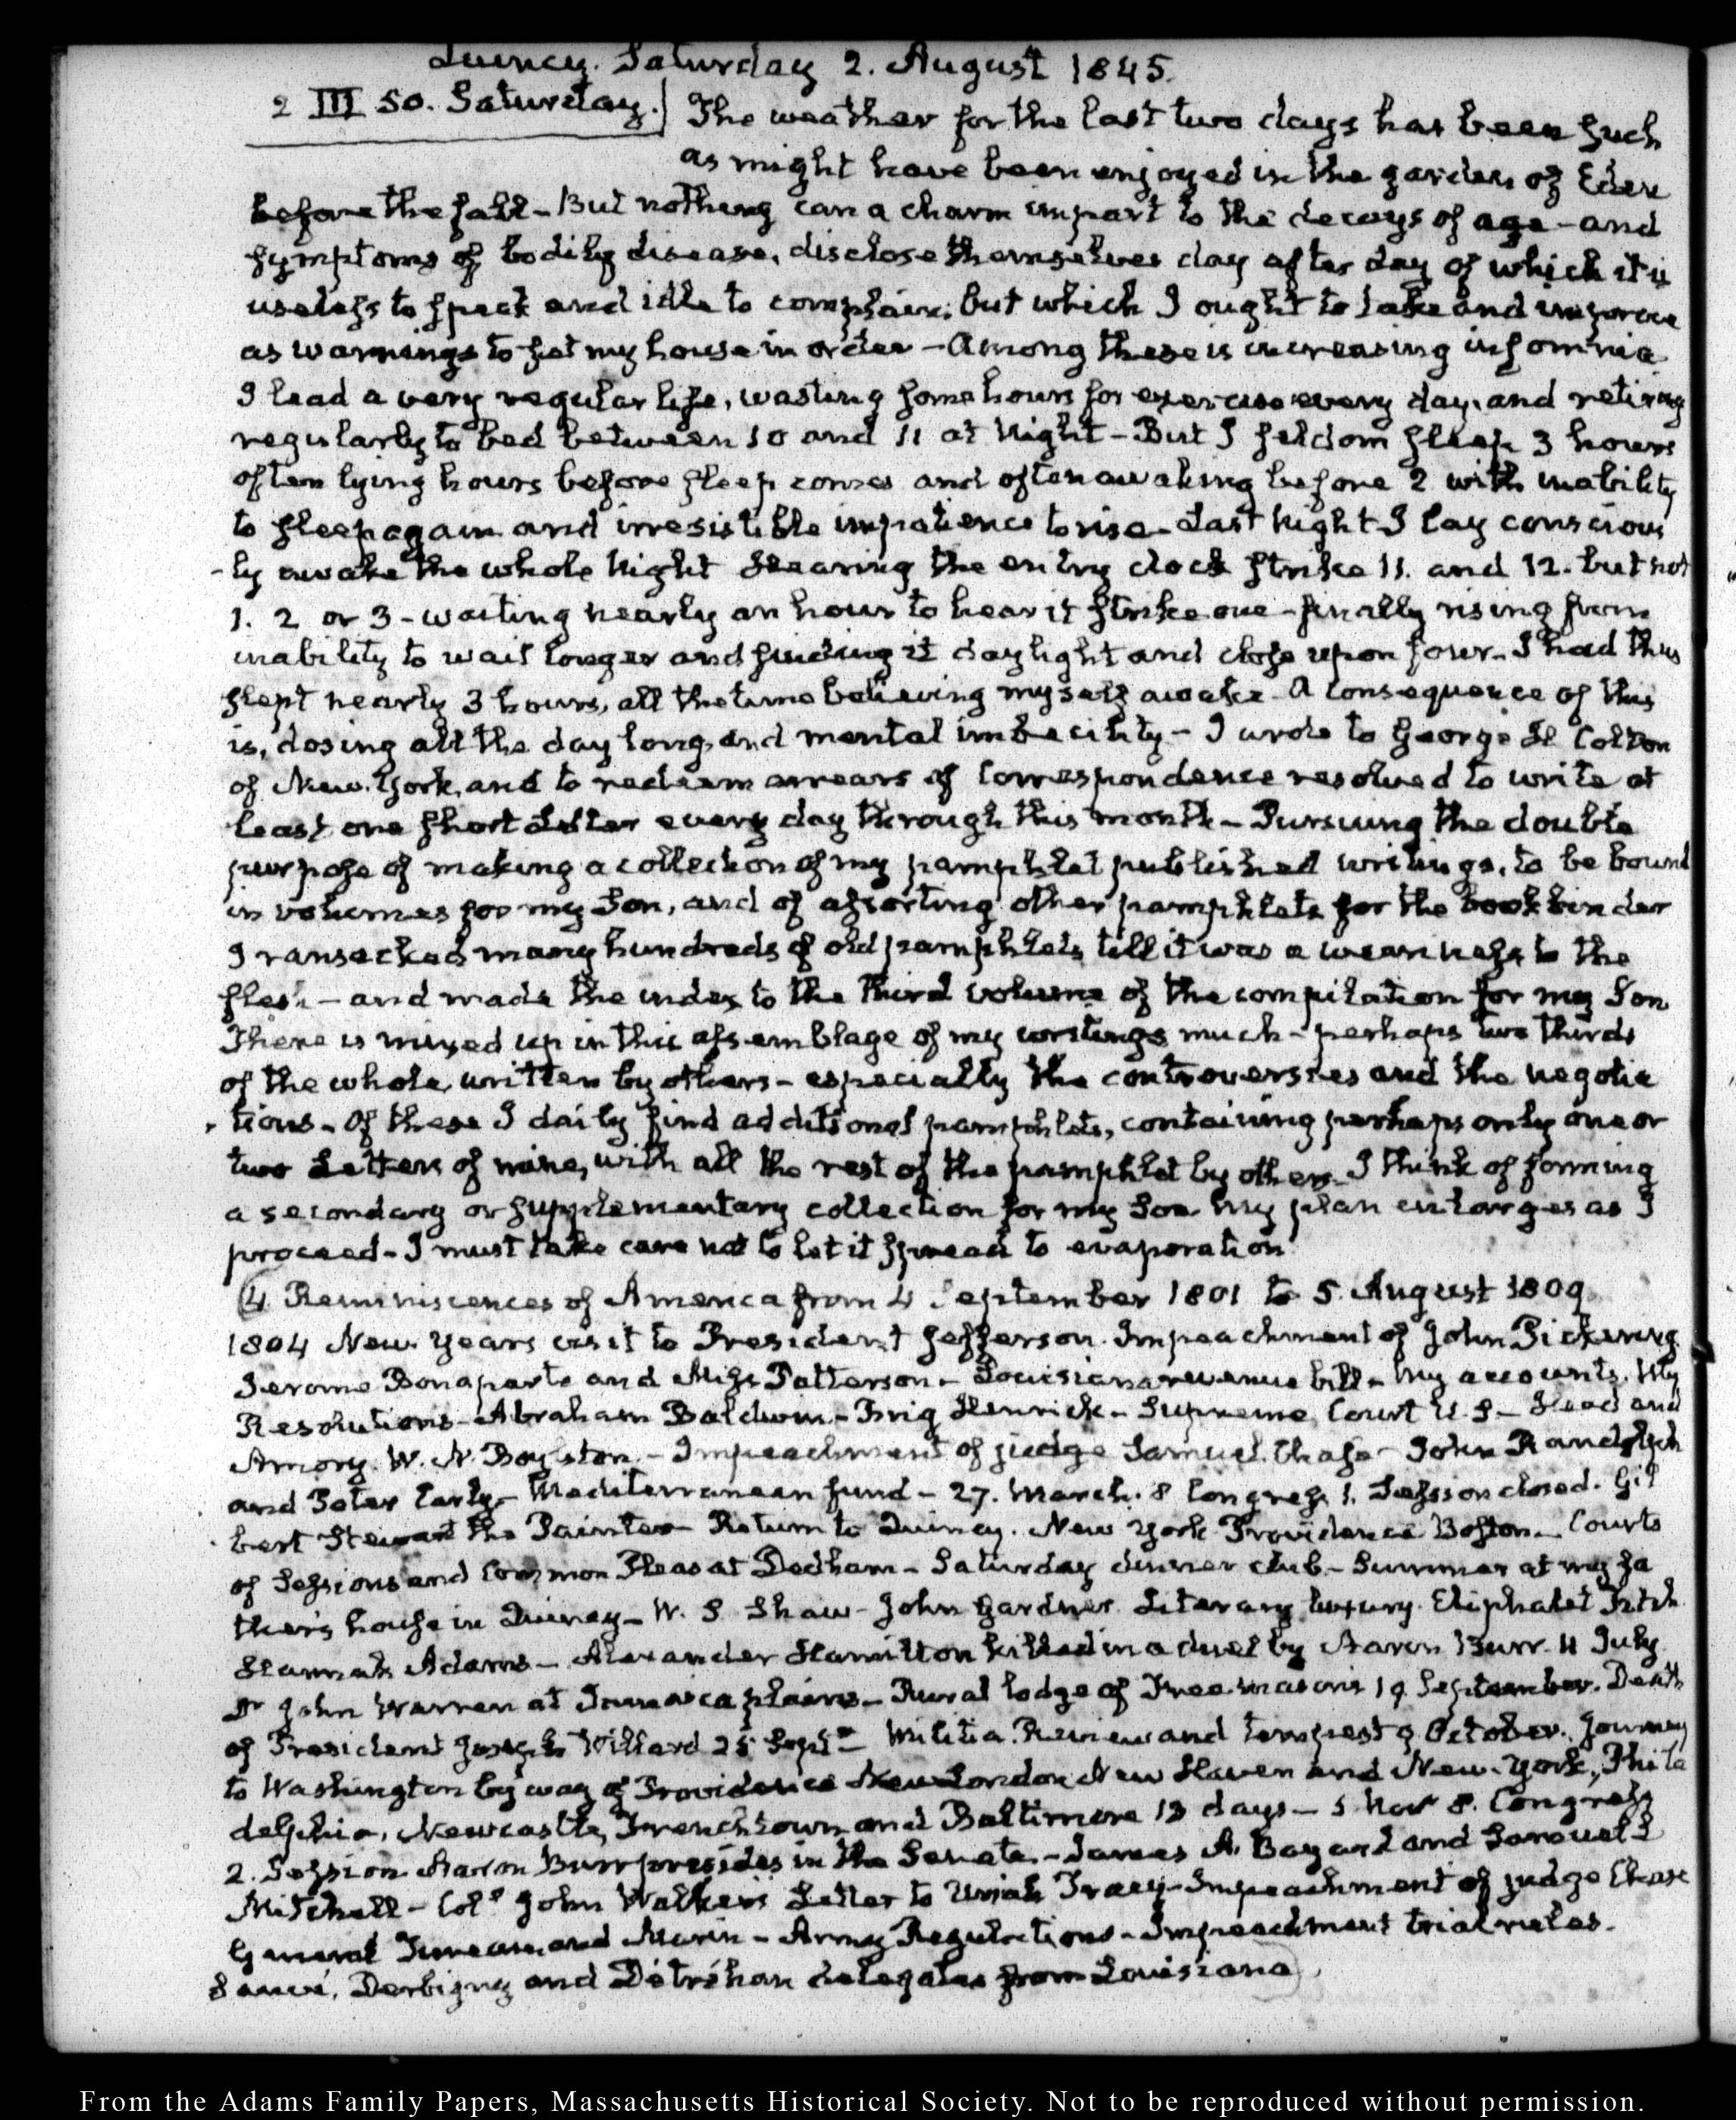 Quincy. Saturday 2. August 1845.
2 III 50. Saturday.
The weather for the last two days has been such
as might have been enjoyed in the garden of Eden
before the fall - But nothing can a charm impart to the decays of age - and
symptoms of bodily disease, disclose themselves day after day of which it is
useless to speak and idle to complain; but which I ought to take and improve
as warnings to set my house in order - Among these is increasing insomnia
I lead a very regular life, wasting some hours for exercise every day, and retiring
regularly to bed between 10 and 11 at Night - But I seldom sleep 3 hours
often lying hours before sleep comes and often awaking before 2 with inability
to sleep again and irresistible impatience to rise - Last Night I lay conscious
-ly awake the whole Night Hearing the entry clock strike 11. and 12. but not
1. 2 or 3 - waiting nearly an hour to hear it strike one - finally rising from
inability to wait longer and finding it daylight and close upon four - I had thus
slept nearly 3 hours, all the time believing myself awake - A consequence of this
is, dosing all the day long, and mental imbecility - I wrote to George H Colton
of New-York, and to redeem arrears of correspondence resolved to write at
least one short Letter every day through this month - Pursuing the double
purpose of making a collection of my pamphlet published writings, to be bound
in volumes for my Son, and of assorting other pamphlets for the bookbinder
I ransacked many hundreds of old pamphlets till it was a weariness to the
flesh - and made the index to the third volume of the compilation for my Son
There is mixed up in this assemblage of my writings much - perhaps two thirds
of the whole written by others - especially the controversies and the negotia
-tions - Of these I daily find additional pamphlets, containing perhaps only one or
two Letters of mine, with all the rest of the pamphlet by others - I think of forming
a secondary or supplementary collection for my Son my plan enlarges as I
proceed - I must take care not to let it spread to evaporation
(4. Reminiscences of America from 4 September 1801 to 5. August 1809
1804 New years visit to President Jefferson. Impeachment of John Pickering
Jerome Bonaparte and Miss Patterson - Louisiana revenue bill - My accounts. My
Resolutions - Abraham Baldwin - Brig Henrick - Supreme Court U.S - Head and
Amory. W. N. Boylston - Impeachment of judge Samuel Chase - John Randolph
and Peter Early - Mediterranean fund - 27. March. 8 Congress 1. Session closed. Gil
-bert Stewart the Painter - Return to Quincy. New York Providence Boston - Courts
of Sessions and Common Pleas at Dedham - Saturday dinner club - Summer at my fa
ther's house in Quincy - W. S. Shaw - John Gardner Literary luxury. Eliphalet Fitch
Hannah Adams - Alexander Hamilton killed in a duel by Aaron Burr. 11 July
Dr John Warren at Jamaica plains - Rural lodge of Free masons 19 September. Death
of President Joseph Willard 25 Septr - Militia Review and tempest 9 October. Journey
to Washington by way of Providence New London New Haven and New-York, Phila
delphia, Newcastle, Frenchtown and Baltimore 13 days - 5 Novr 8. Congress
2. Session Aaron Burr presides in the Senate - James A. Bayard and Samuel L
Mitchell - Coll John Walker's Letter to Uriah Tracy - Impeachment of judge Chase
General Turreau and Marin - Army Regulations - Impeachment trial rules.
Sauvé, Derbigny and Détréhan delegates from Louisiana)
From the Adams Family Papers, Massachusetts Historical Society. Not to be reproduced without permission.